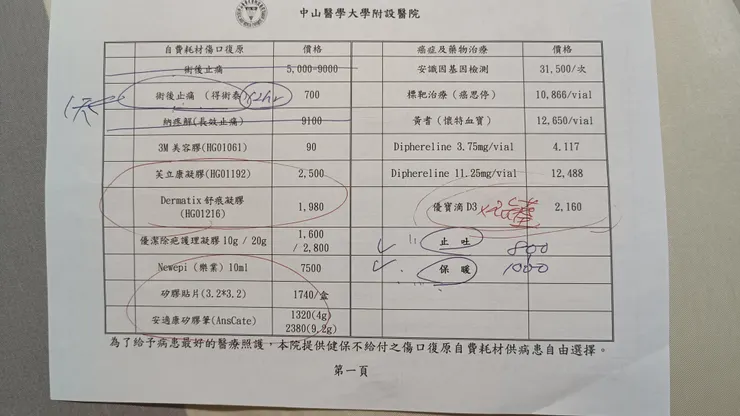 中山醫學大學附設醫院
自費耗材傷口復原 價格 癌症及藥物治療 價格
術後止痛 5,000-9000 安識因基因檢測 31,500/次
術後止痛 (得術泰) 62hr 700 標靶治療 (癌思停) 10,866/vial
納疼解(長效止痛) 9100 黃耆 (懷特血寶) 12,650/vial
3M 美容膠(HG01061) 90 Diphereline 3.75mg/vial 4.117
芙立康凝膠(HG01192) 2,500 Diphereline 11.25mg/vial 12,488
Dermatix 舒痕凝膠 (HG01216) 1,980 優寶滴 D3 2,160
優潔除疤護理凝膠 10g / 20g 1,600 / 2,800 止吐 800
Newepi (樂業) 10ml 7500 保暖 1000
矽膠貼片(3.2*3.2) 1740/盒
安適康矽膠筆(AnsCate) 1320(4g) 2380(9.2g)
為了給予病患最好的醫療照護，本院提供健保不給付之傷口復原自費耗材供病患自由選擇。
第一頁